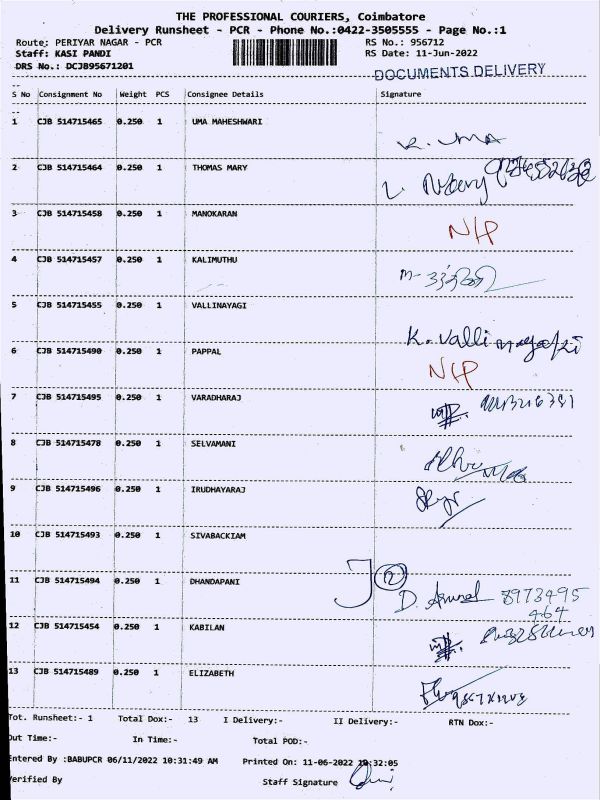 THE PROFESSIONAL COURIERS, Coimbatore
Delivery Runsheet - PCR - Phone No.:0422-3505555 - Page No.:1
Route: PERIYAR NAGAR - PCR RS No.: 956712
Staff: KASI PANDI RS Date: 11-Jun-2022
DRS No.: DCJB95671201
DOCUMENTS DELIVERY
S No Consignment No Weight PCS Consignee Details Signature
1 CJB 514715465 0.250 1 UMA MAHESHWARI
K. UMA
2 CJB 514715464 0.250 1 THOMAS MARY
3 CJB 514715458 0.250 1 MANOKARAN
N/P
4 CJB 514715457 0.250 1 KALIMUTHU
5 CJB 514715455 0.250 1 VALLINAYAGI
K. Valli
6 CJB 514715490 0.250 1 PAPPAL
N/P
7 CJB 514715495 0.250 1 VARADHARAJ
8 CJB 514715478 0.250 1 SELVAMANI
9 CJB 514715496 0.250 1 IRUDHAYARAJ
10 CJB 514715493 0.250 1 SIVABACKIAM
2
11 CJB 514715494 0.250 1 DHANDAPANI
D. 8973495
464
12 CJB 514715454 0.250 1 KABILAN
13 CJB 514715489 0.250 1 ELIZABETH
Tot. Runsheet:- 1 Total Dox:- 13 I Delivery:- II Delivery:- RTN Dox:-
Out Time:- In Time:- Total POD:-
Entered By :BABUPCR 06/11/2022 10:31:49 AM Printed On: 11-06-2022 10:32:05
Verified By Staff Signature